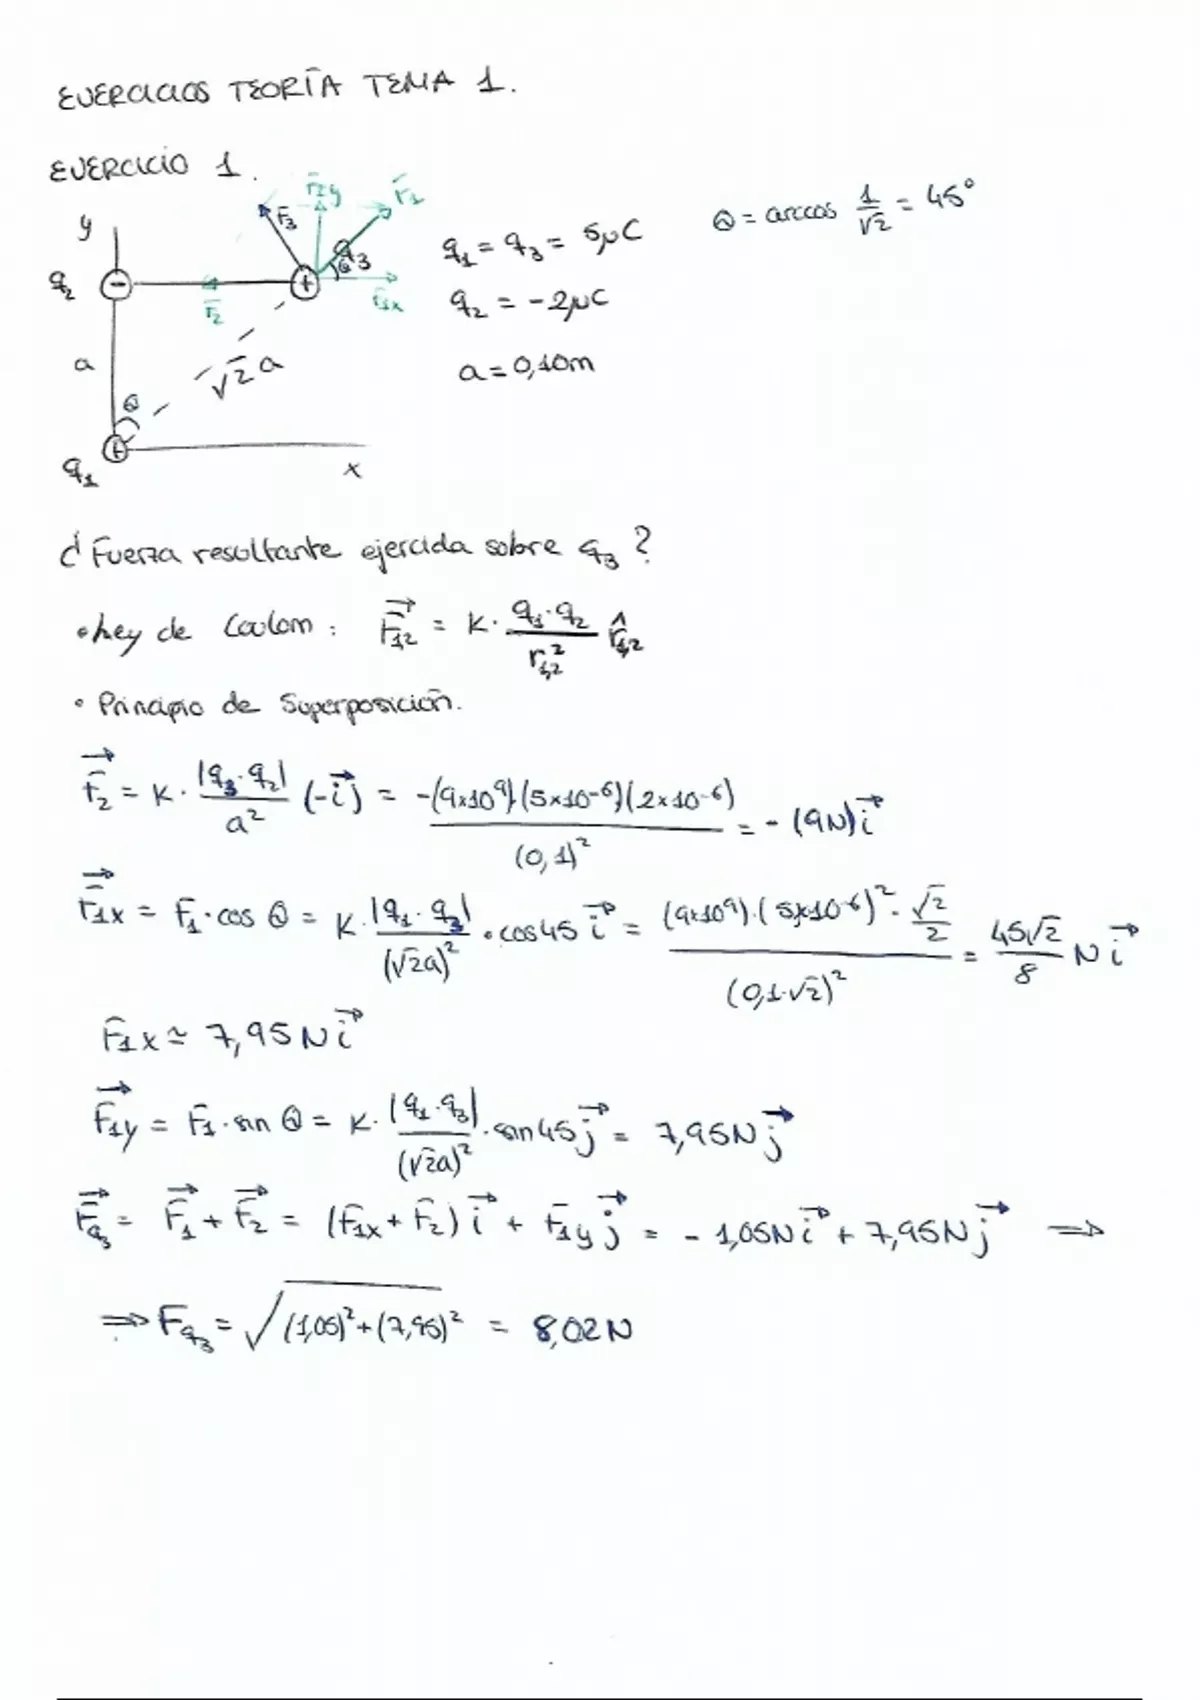 EJERCICIOS TEORÍA TEMA 1.
EJERCICIO 1.
y F₃ F₁y F₁ q₃ θ F₁x
q₂ − + F₂
a √2 a θ
q₁ + x
q₁ = q₃ = 5μC
q₂ = -2μC
a = 0,10m
θ = arccos 1/√2 = 45°
¿Fuerza resultante ejercida sobre q₃?
• Ley de Coulom: F⃗₁,₂ = K · q₁·q₂/r₁,₂² r̂₁,₂
• Principio de Superposición.
F⃗₂ = K · |q₃·q₂|/a² (-i⃗) = -(9x10⁹)(5x10⁻⁶)(2x10⁻⁶)/(0,1)² = - (9N) i⃗
F⃗₁x = F₁·cos θ = K · |q₁·q₃|/(√2a)² · cos45 i⃗ = (9x10⁹)·(5x10⁻⁶)²·√2/2/(0,1·√2)² = 45√2/8 N i⃗
F₁x ≃ 7,95 N i⃗
F⃗₁y = F₁·sin θ = K · |q₁·q₃|/(√2a)² · sin45 j⃗ = 7,95N j⃗
F⃗q₃ = F⃗₁ + F⃗₂ = (F₁x + F₂) i⃗ + F₁y j⃗ = - 1,05N i⃗ + 7,95N j⃗ ⟹
⟹ Fq₃ = √(1,05)² + (7,95)² = 8,02N